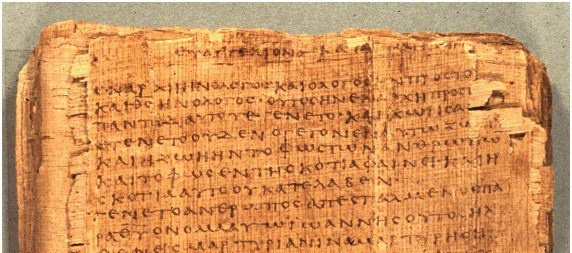 ΕΥΑΓΓΕΛΙΟΝ ΚΑΤΑ
ΕΝΑΡΧΗΗΝΟΛΟΓΟϹΚΑΙΟΛΟΓΟϹΗΝΠΡΟϹΤΟ
ΚΑΙΘϹΗΝΟΛΟΓΟϹ·ΟΥΤΟϹΗΝΕΝΑΡΧΗΠΡΟϹΤ
ΠΑΝΤΑΔΙΑΥΤΟΥΕΓΕΝΕΤΟ·ΚΑΙΧΩΡΙϹΑΥ
ΕΓΕΝΕΤΟΟΥΔΕΝΟΓΕΓΟΝΕΝΕΝΑΥΤΩΖΩ
ΚΑΙΗΖΩΗΗΝΤΟΦΩϹΤΩΝΑΝΘΡΩΠΩ
ΚΑΙΤΟΦΩϹΕΝΤΗϹΚΟΤΙΑΦΑΙΝΕΙΚΑΙΗ
ϹΚΟΤΙΑΑΥΤΟΟΥΚΑΤΕΛΑΒΕΝ
ΕΓΕΝΕΤΟΑΝΘΡΩΠΟϹΑΠΕϹΤΑΛΜΕΝΟϹΠΑ
ΡΑΘΥΟΝΟΜΑΑΥΤΩΙΩΑΝΝΗϹΟΥΤΟϹΗΛ
ΘΕΝΕΙϹΜΑΡΤΥΡΙΑΝΙΝΑΜΑΡΤΥΡΗϹΗ